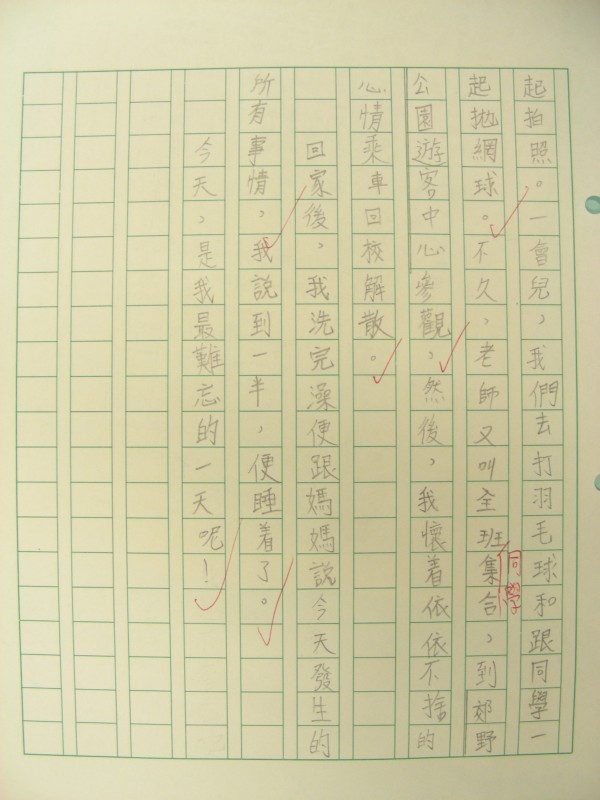 起拍照。一會兒，我們去打羽毛球和跟同學一
起拋網球。不久，老師又叫全班集合，到郊野
同學
公園遊客中心參觀，然後，我懷着依依不捨的
心情乘車回校解散。
回家後，我洗完澡便跟媽媽說今天發生的
所有事情，我說到一半，便睡着了。
今天，是我最難忘的一天呢！